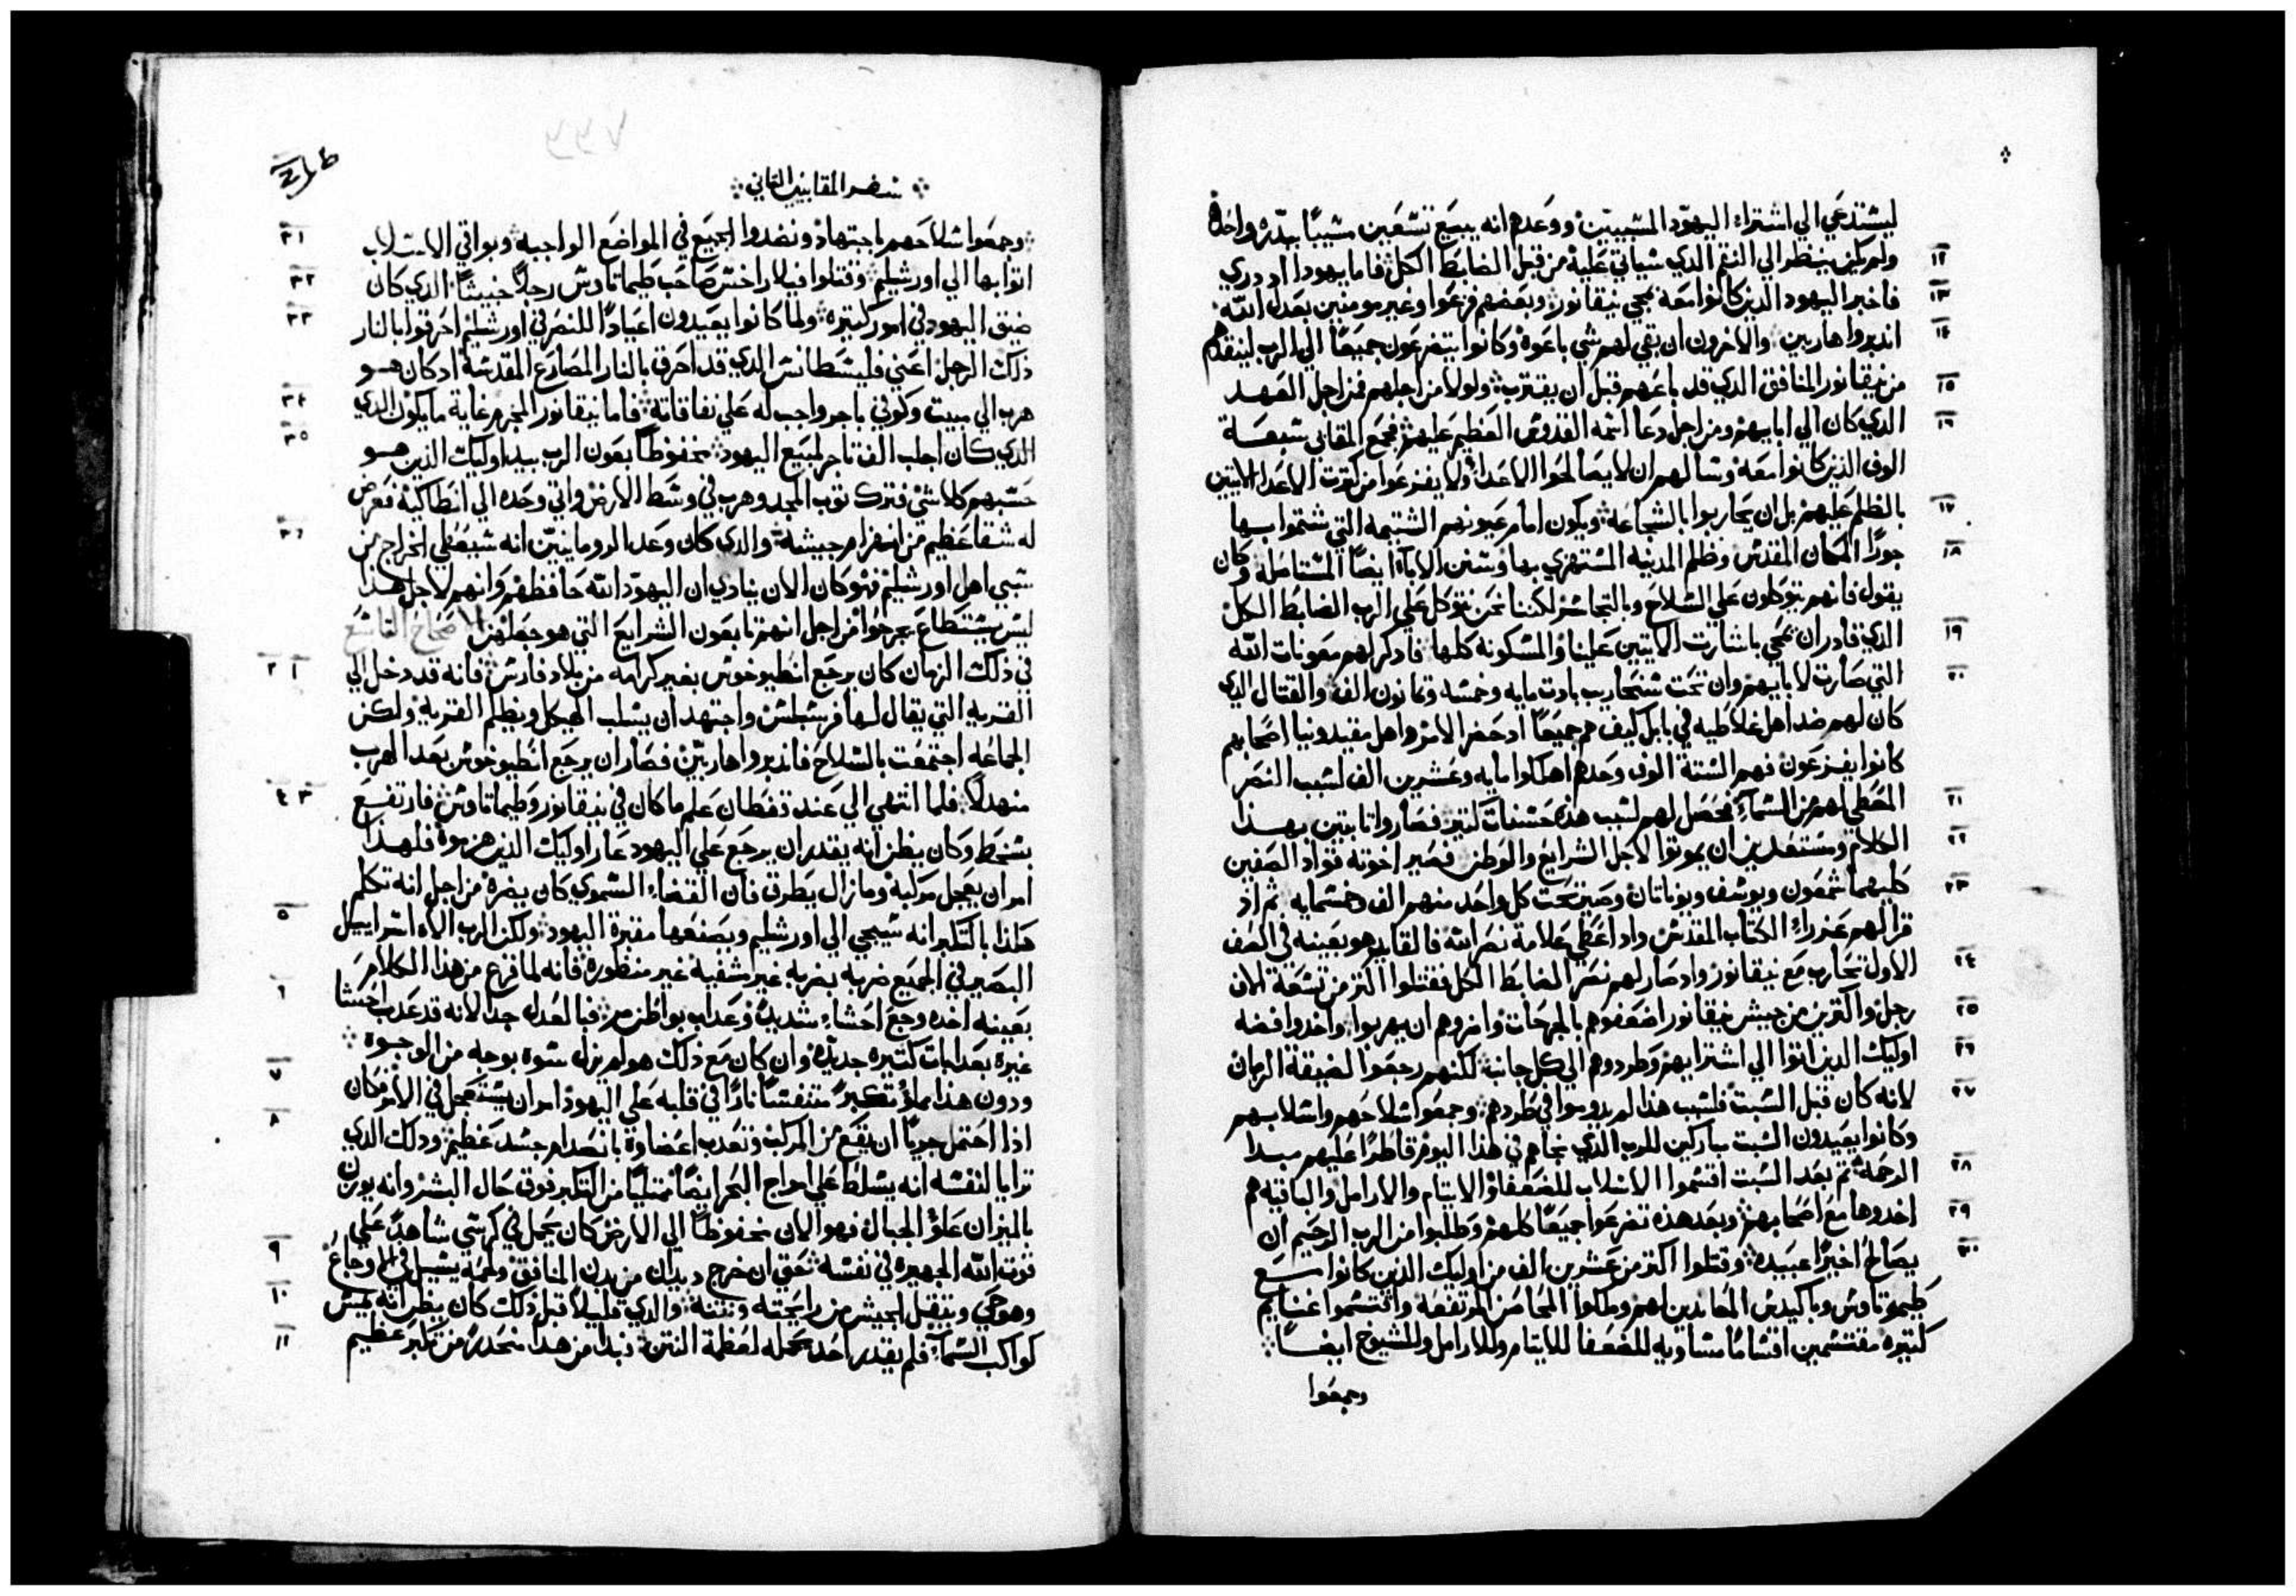 ليستدعي الي اشتراء اليهود المسبيين ووعدهم انه يبيع تسعين مسبيًا ببدره واحده
١٢ ولم يكن ينظر الي النقم الذي سياتي عليه من قبل الضابط الكل فاما يهودا اد دري
١٣ فاخبر اليهود الذين كانوا معه بمجي نيقانور وبعضهم فزعوا وغير مومنين بعدل الله
١٤ اندبروا هاربين والاخرون ان بقي لهم شي باعوه وكانوا يتضرعون جميعًا الي الرب لينقدهم
١٥ من نيقانور المنافق الذي قد باعهم قبل ان يقترب ولولا من اجلهم فمن اجل العهد
١٦ الذي كان الي ابايهم ومن اجل دعا اسمه القدوس العظيم عليهم فجمع المقابي سبعة
الوف الذين كانوا معه وسالهم ان لا يصالحوا الاعدا ولا يفزعوا من كترت الاعدا الاتيين
١٧ بالظلم عليهم بل ان يحاربوا بالشجاعة ويكون امام عيونهم الشتيمه التي شتموا بها
١٨ جورًا المكان المقدس وظلم المدينه المستهزي بها وسنن الابا ايضًا المستاصله وكان
يقول فانهم يتوكلون علي السلاح وبالتجاسر لكننا نحن نتوكل علي الرب الضابط الكل
١٩ الذي قادر ان يمحي باشارت الاتيين علينا والمسكونه كلها فادكر لهم معونات الله
٢٠ التي صارت لابايهم وان تحت سنحاريب بادت مايه وخمسه وتمانون الف والقتال الدي
كان لهم ضد اهل غلاطيه في بابل كيف هم جميعًا اد حضر الامر واهل مقيدونيا اصحابهم
كانوا يفزعون فهم الستة الوف وحدهم اهلكوا مايه وعشرين الف لسبب النصر
٢١ المعطي لهم من السماء فحصل لهم لسبب هذه حسنات كتير فصاروا تابتين بهذا
٢٢ الكلام ومستعدين ان يموتوا لاجل الشرايع والوطن فصير اخوته قواد الصفين
٢٣ كليهما شمعون ويوسف ويوناتان وصير تحت كل واحد منهم الف وخمسمايه ثم اد
قرا لهم عزراء الكتاب المقدس واد اعطي علامة نصر الله فالقايد هو بعينه في الصف
٢٤ الاول تحارب مع نيقانور واد صار لهم نصر الضابط الكل فقتلوا اكتر من تسعة الاف
٢٥ رجل واكترين من جيش نيقانور اضعفوهم بالجرحات وامروهم ان يهربوا واخدوا فضه
٢٦ اوليك الذين اتوا الي اشترايهم وطردوهم الي كل جانب لكنهم رجعوا لضيقة الزمان
٢٧ لانه كان قبل السبت فلسبب هذا لم يدوموا في طردهم وجمعوا سلاحهم واسلابهم
وكانوا يعيدون السبت مباركين للرب الذي نجاهم في هذا اليوم قاطرًا عليهم مبدا
٢٨ الرحمة ثم بعد السبت اقتسموا الاسلاب للضعفا والايتام والارامل والباقيه هم
٢٩ اخدوها مع اصحابهم وبعد هذه تضرعوا جميعًا كلهم وطلبوا من الرب الرحيم ان
٣٠ يصالح اخيرًا عبيده وقتلوا اكتر من عشرين الف من اوليك الذين كانوا مع
طيموتاوس وباكيدس المعاندين لهم وملكوا المحاصن المرتفعه واقتسموا غنايم
كتيره مقتسمين اقسامًا مساويه للضعفا للايتام وللارامل وللشيوخ ايضًا
وجمعوا
سفر المقابيين التاني
٣١ وجمعوا سلاحهم باجتهاد ونضدوا الجميع في المواضع الواجبه وبواقي الاستلاب
٣٢ اتوا بها الي اورشليم وقتلوا فيلارخس صاحب طيماتاوس رجلاً خبيثًا الدي كان
٣٣ ضيق اليهود في امور كتيره ولما كانوا يعيدون اعيادًا للنصر في اورشليم احرقوا بالنار
ذلك الرجل اعني فليسطانس الدي قد احرق بالنار المصارع المقدسة اد كان هو
٣٤ هرب الي بييت وكوفي باجر واجب له علي نفاقاته فاما نيقانور المجرم غاية ما يكون الدي
٣٥ الدي كان اجلب الف تاجر لمبيع اليهود محفوظًا بعون الرب بيد اوليك الذين هو
حسبهم كلا شي فترك توب المجد وهرب في وسط الارض واتي وحده الي انطاكية فعرض
٣٦ له شقا عظيم من انهزام جيشه والدي كان وعد الرومانيين انه سيعطي الخراج من
سبي اهل اورشليم فهو كان الان ينادي ان اليهود الله حافظهم وانهم لاجل هذا
ليس يستطاع يجرحوا من اجل انهم تابعون الشرايع التي هو جعلهن الاصحاح التاسع
١ ٢ في ذلك الزمان كان يرجع انطيوخوس بغير كرامه من بلاد فارس فانه قد دخل الي
القريه التي يقال لها فرسبلس واجتهد ان يسلب الهيكل ويظلم القريه ولكن
الجماعه اجتمعت بالسلاح فاندبروا هاربين فصار ان يرجع انطيوخوس بعد الهرب
٣ ٤ منهدلاً فلما انتهي الي عند قفطان علم ما كان في نيقانور وطيماتاوس فارتفع
بسخط وكان يظن انه يقدر ان يرجع علي اليهود عار اوليك الذين هزموه فلهذا
امر ان يعجل مركبه وما زال يطرق فان القضاء السموي كان يضره من اجل انه تكلم
٥ هكذا بالتكبر انه سيجي الي اورشليم ويصنعها مقبرة اليهود ولكن الرب الاه اسراييل
البصير في الجميع ضربه بضربه غير شفيه غير منظوره فانه لما فرغ من هذا الكلام
٦ بعينه اخده وجع احشاء شديد وعداب بواطن مر فبالعدل جدًا لانه قد عدب احشا
غيره بعدابات كتيره جديده وان كان مع ذلك هو لم يزل سوه بوجه من الوجوه
٧ ودون هذا مملو تكبر متنفسًا نارًا في قلبه علي اليهود امر ان يستعجل في الامر فكان
٨ اذا احتمل جريًا ان يقع من المركب وتعدب اعضاوه بانصدام جسد عظيم ودلك الدي
ترايا لنفسه انه يسلط علي امواج البحر ايضًا ممتليًا من التكبر فوق حال البشر وانه يوزن
بالميزان علو الجبال فهو الان محفوظًا الي الارض كان يحمل في كرسي شاهدًا علي
٩ قوت الله الجهيره في نفسه حتي ان خرج ديدان من بدن المنافق ولحمه يسيل في الاوجاع
١٠ وهو حي ويتقل الجيش من رايحته ونتنه والدي قليلاً قبل ذلك كان يظن انه يمس
١١ كواكب السماء فلم يقدر احد يحمله لعظمة النتن فبدا من هذا منحدرًا من تكبر عظيم